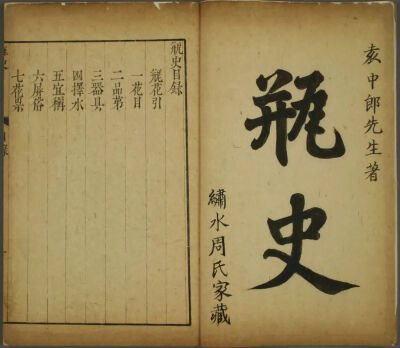 袁中郎先生著
瓶史
繡水周氏家藏
瓶史目錄
瓶花引
一花目
二品第
三器具
四擇水
五宜稱
六屏俗
七花祟